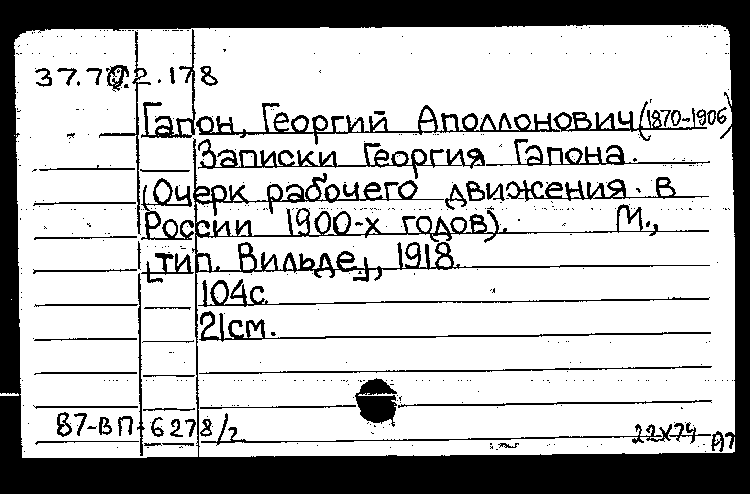 37.702.178
Гапон, Георгий Аполлонович (1870-1906)
Записки Георгия Гапона.
(Очерк рабочего движения в
России 1900-х годов). М.,
[тип. Вильде], 1918.
104с.
21см.
87-ВП-6278/2
22X74 А7